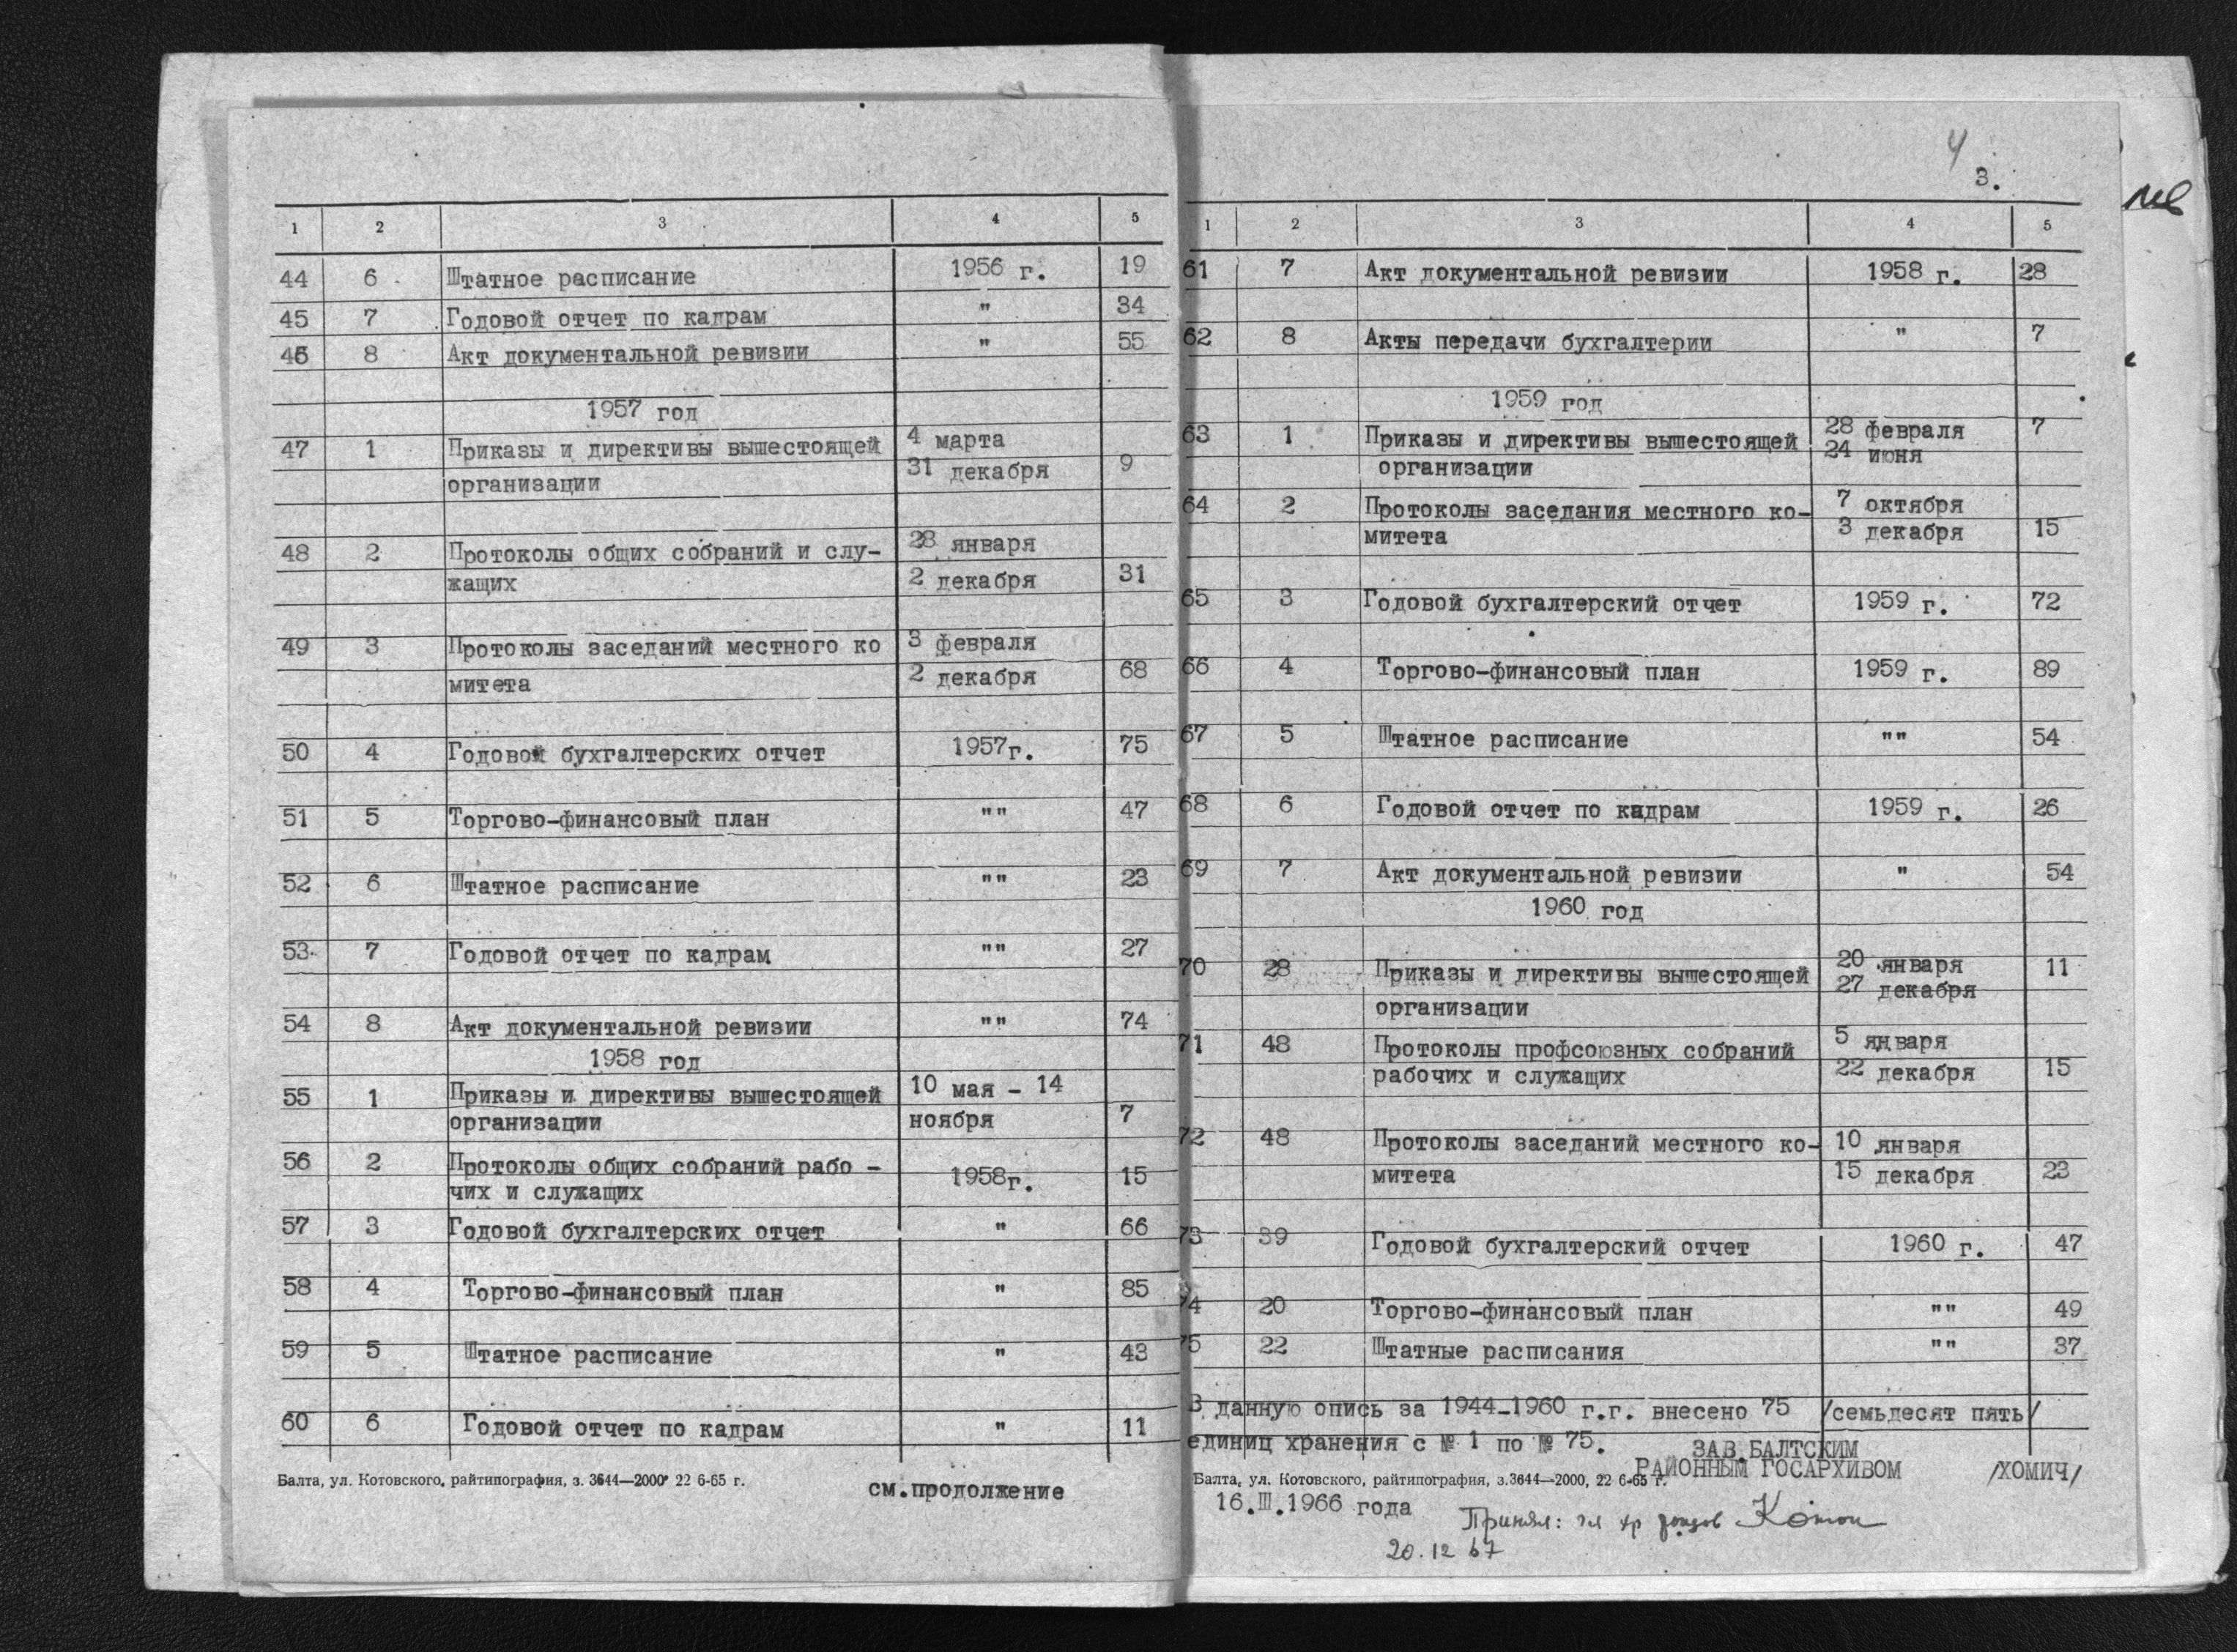 1 2 3 4 5
44 6 Штатное расписание 1956 г. 19
45 7 Годовой отчет по кадрам " 34
46 8 Акт документальной ревизии " 55
1957 год
47 1 Приказы и директивы вышестоящей 4 марта
организации 31 декабря 9
48 2 Протоколы общих собраний и слу- 28 января
жащих 2 декабря 31
49 3 Протоколы заседаний местного ко 3 февраля
митета 2 декабря 68
50 4 Годовой бухгалтерских отчет 1957г. 75
51 5 Торгово-финансовый план "" 47
52 6 Штатное расписание "" 23
53 7 Годовой отчет по кадрам "" 27
54 8 Акт документальной ревизии "" 74
1958 год
55 1 Приказы и директивы вышестоящей 10 мая - 14
организации ноября 7
56 2 Протоколы общих собраний рабо -
чих и служащих 1958г. 15
57 3 Годовой бухгалтерских отчет " 66
58 4 Торгово-финансовый план " 85
59 5 Штатное расписание " 43
60 6 Годовой отчет по кадрам " 11
Балта, ул. Котовского, райтипография, з. 3644—2000 22 6-65 г.
см.продолжение
4
3.
1 2 3 4 5
61 7 Акт документальной ревизии 1958 г. 28
62 8 Акты передачи бухгалтерии " 7
1959 год
63 1 Приказы и директивы вышестоящей 28 февраля 7
организации 24 июня
64 2 Протоколы заседания местного ко- 7 октября
митета 3 декабря 15
65 3 Годовой бухгалтерский отчет 1959 г. 72
66 4 Торгово-финансовый план 1959 г. 89
67 5 Штатное расписание "" 54
68 6 Годовой отчет по кадрам 1959 г. 26
69 7 Акт документальной ревизии " 54
1960 год
70 28 Приказы и директивы вышестоящей 20 января 11
организации 27 декабря
71 48 Протоколы профсоюзных собраний 5 января
рабочих и служащих 22 декабря 15
72 48 Протоколы заседаний местного ко- 10 января
митета 15 декабря 23
73 39 Годовой бухгалтерский отчет 1960 г. 47
74 20 Торгово-финансовый план "" 49
75 22 Штатные расписания "" 37
В данную опись за 1944-1960 г.г. внесено 75 /семьдесят пять/
единиц хранения с № 1 по № 75.
ЗАВ.БАЛТСКИМ
РАЙОННЫМ ГОСАРХИВОМ /ХОМИЧ/
Балта, ул. Котовского, райтипография, з.3644—2000, 22 6-65 г.
16.III.1966 года
Принял: гл хр фондов
20.12 67